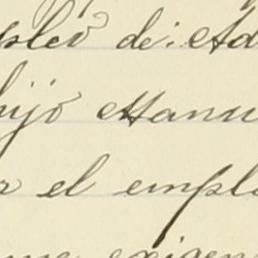 pleo de: Ad
hijo Manu
r el emple
me exigen